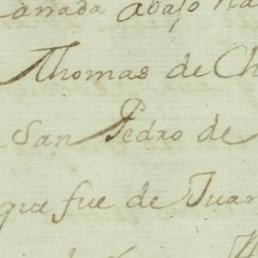 Cañada abajo ha
Thomas de Ch
San Pedro de
que fue de Juan